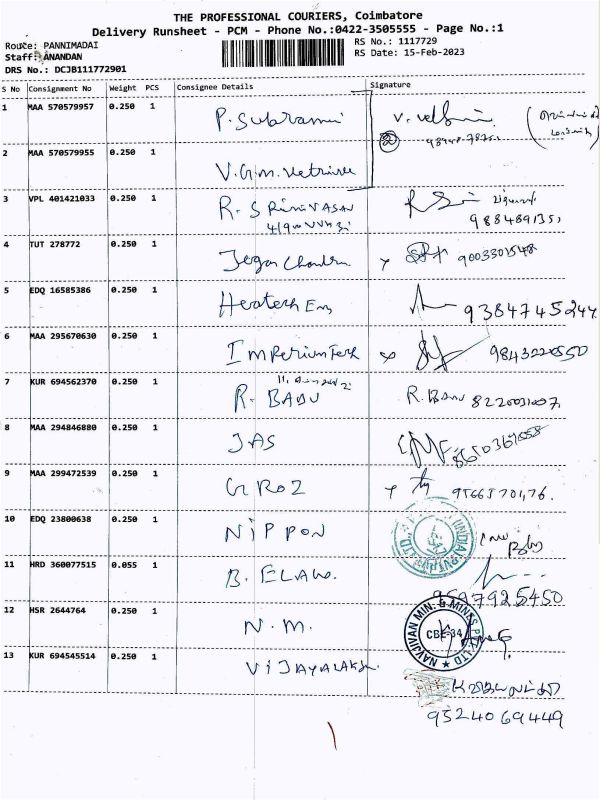 THE PROFESSIONAL COURIERS, Coimbatore
Delivery Runsheet - PCM - Phone No.:0422-3505555 - Page No.:1
Route: PANNIMADAI
RS No.: 1117729
Staff: ANANDAN
RS Date: 15-Feb-2023
DRS No.: DCJB111772901
S No Consignment No Weight PCS Consignee Details Signature
1 MAA 570579957 0.250 1 P. Subramni V.
2 MAA 570579955 0.250 1 V.G.M.
3 VPL 401421033 0.250 1 R. SRINIVASAN
4 TUT 278772 0.250 1 Jegan Chandra 9003301548
5 EDQ 16585386 0.250 1 Heatech 9384745244
6 MAA 295670630 0.250 1 Imperium Tech 9843220550
7 KUR 694562370 0.250 1 R. BABU R. Babu 8220031007
8 MAA 294846880 0.250 1 JAS
9 MAA 299472539 0.250 1 GROZ
10 EDQ 23800638 0.250 1 NIPPON
11 HRD 360077515 0.055 1 B. 9597925450
12 HSR 2644764 0.250 1 N.M. NAVJIVAN MIN. G MINES PVT LTD CBE-34
13 KUR 694545514 0.250 1
9524069449